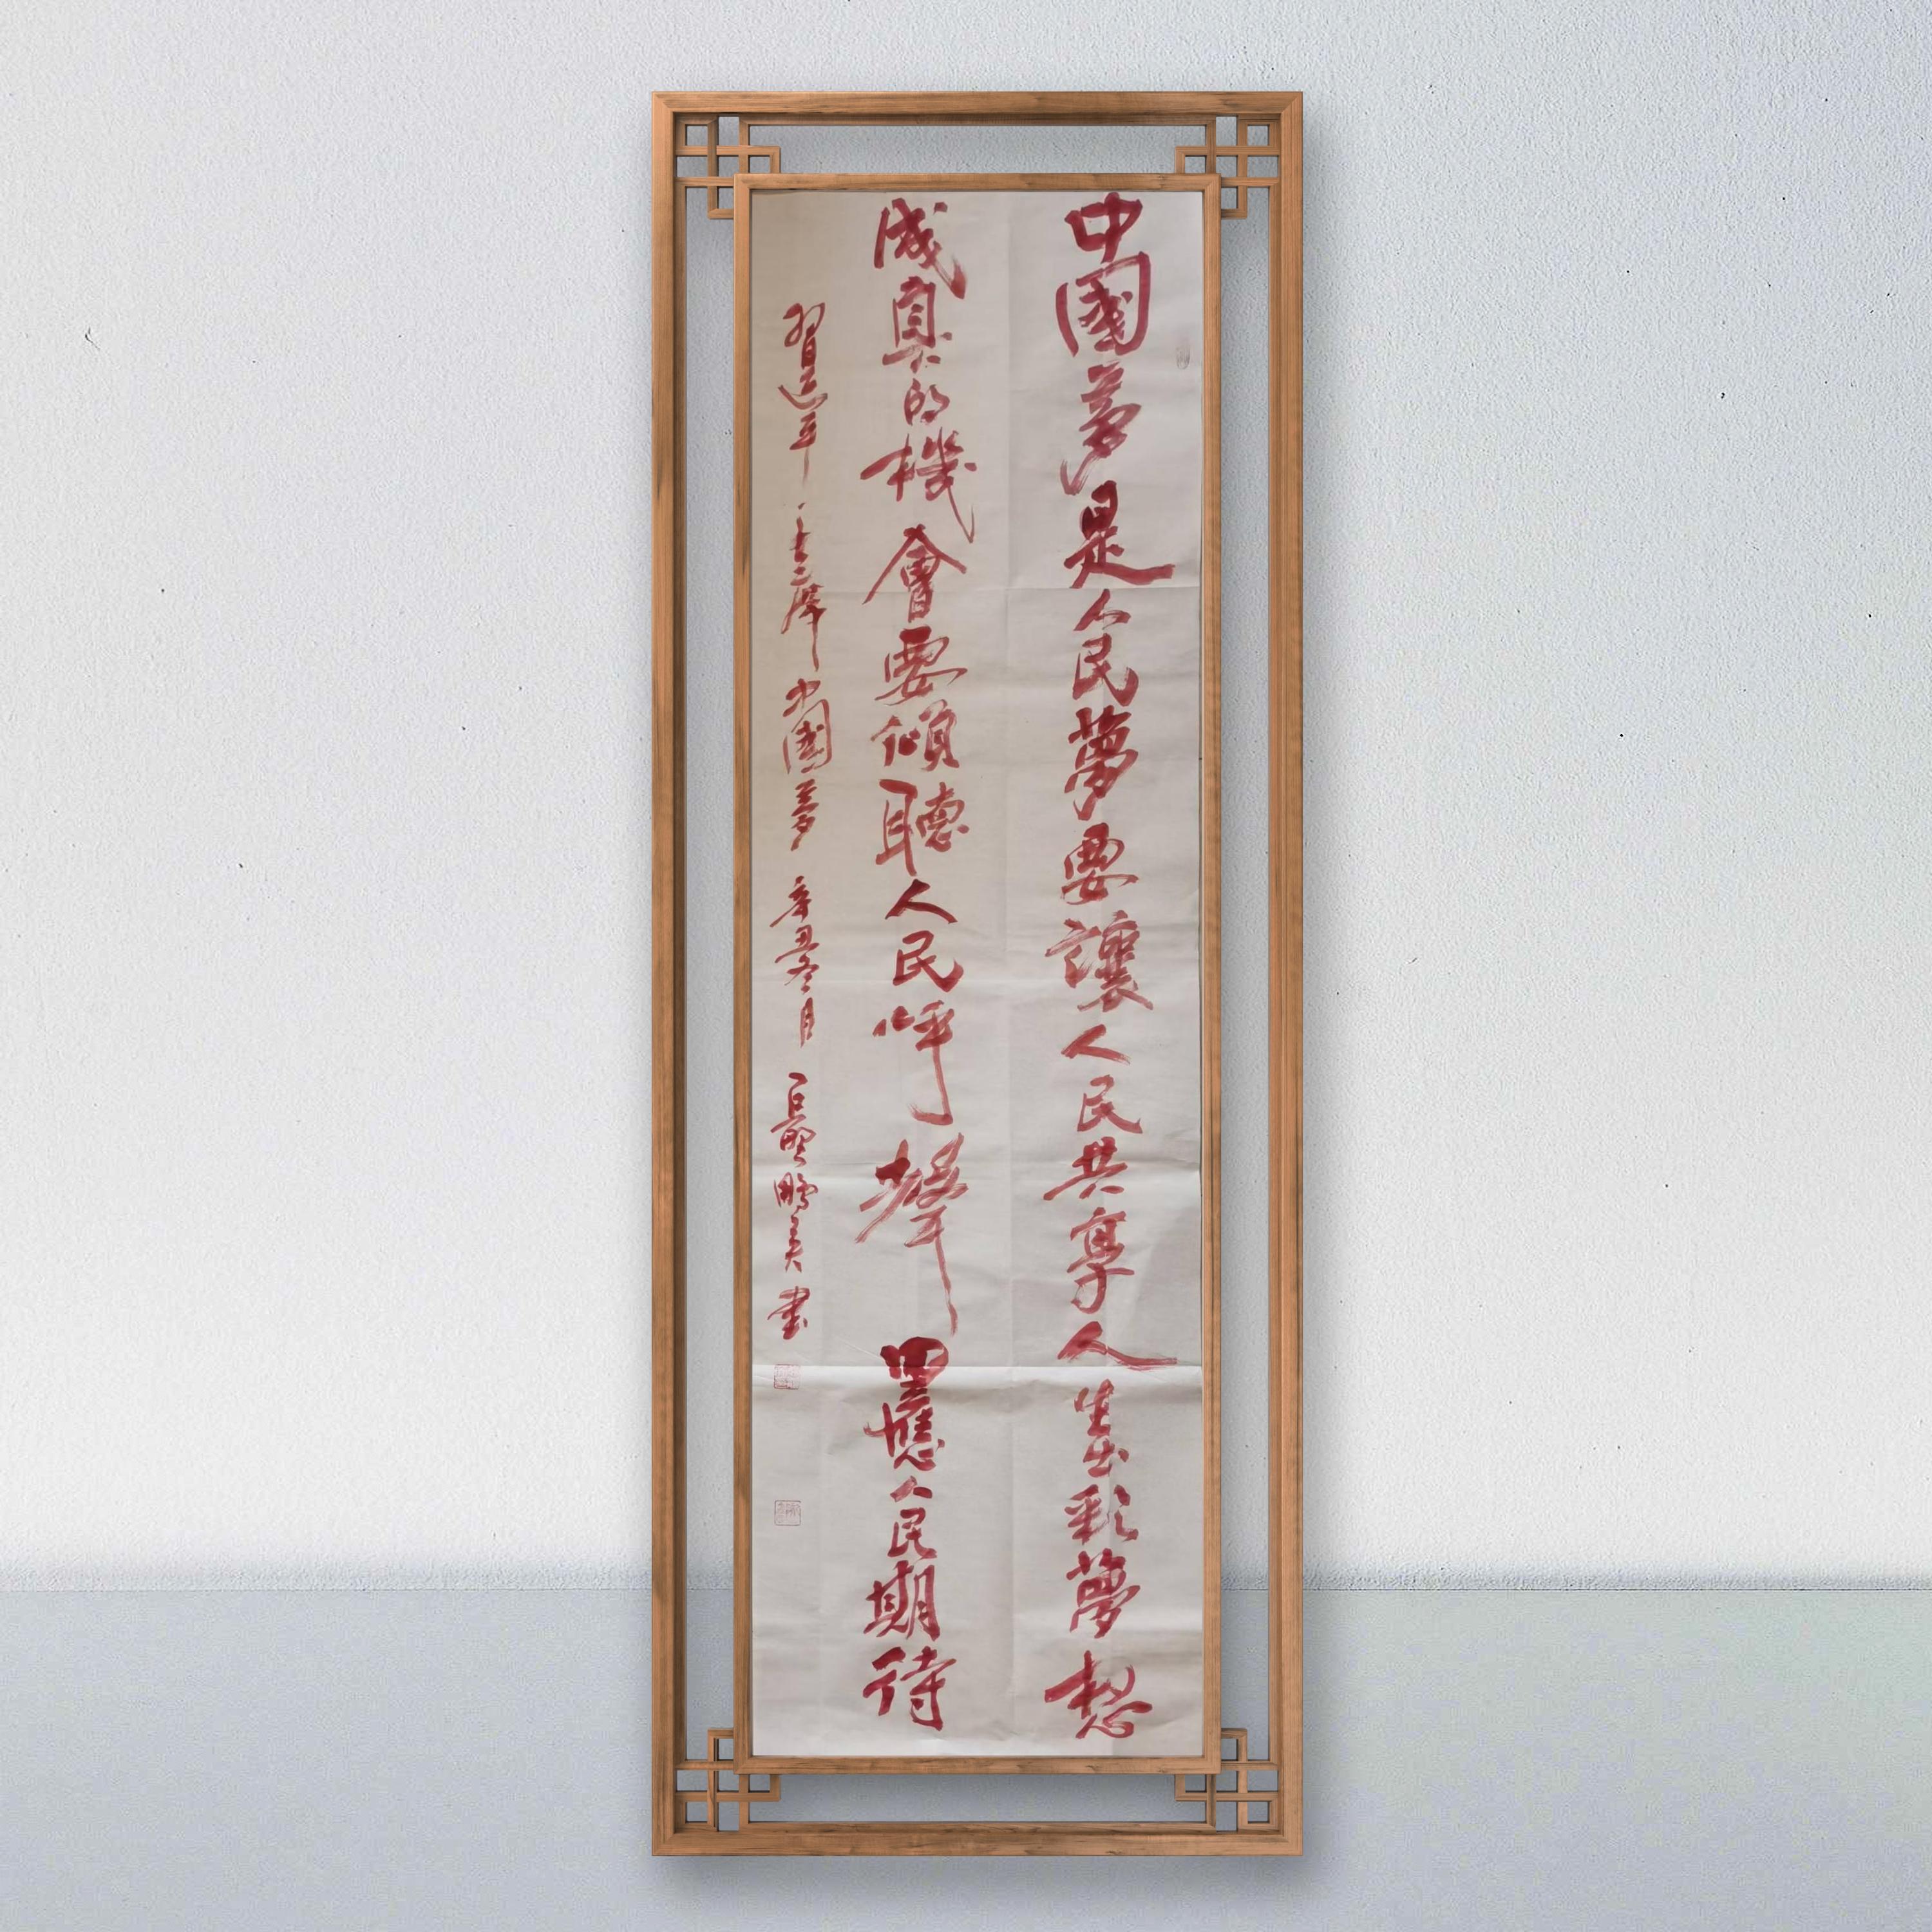 中國夢是人民夢要讓人民共享人生出彩夢想
成真的機會要傾聽人民呼聲回應人民期待
習近平主席中國夢 辛丑冬月 巨野鵬書